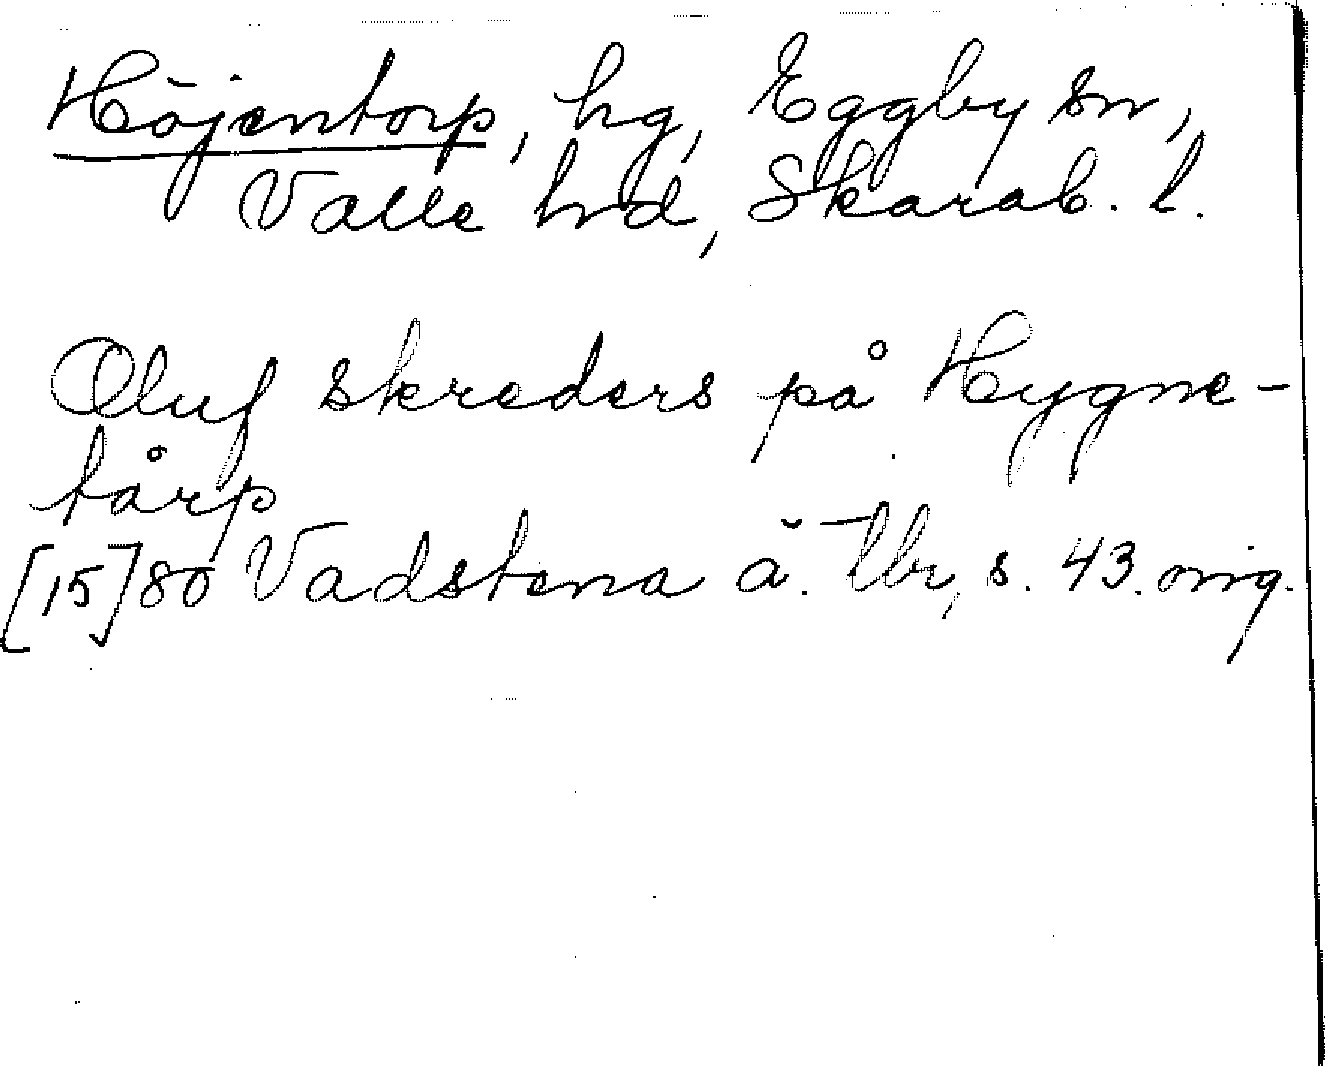 Höjentorp, hg, Eggby sn,
Valle hd, Skarab. l.
Oluf skreders på Hygne-
tårp
[15]80 Vadstena ä. tbr, s. 43. orig.